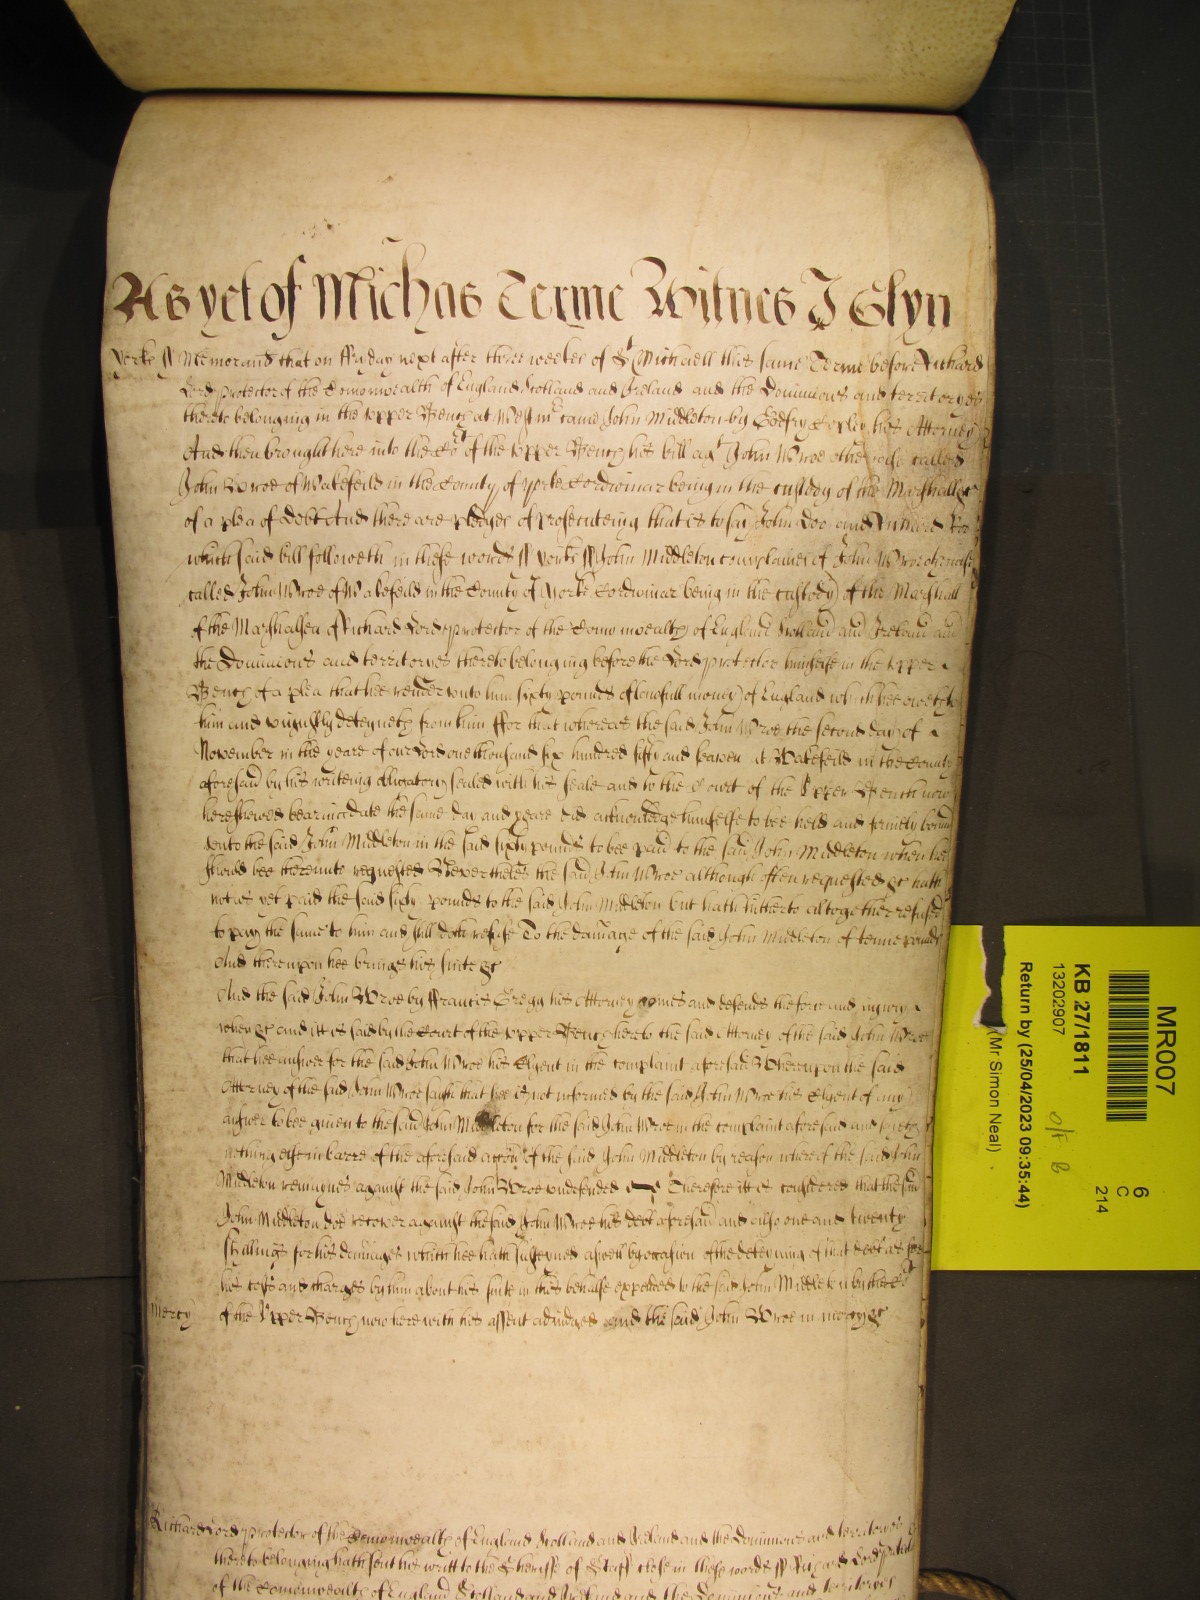 As yet of Michas Terme Witnes J Glyn
Yorke ss Memorand that on ffryday next after three weekes of St Michaell this same Terme before Richard
Lord protector of the Comonwealth of England Scotland and Ireland and the Dominions and territoryes
thereto belonging in the upper Bench at Westmr came John Middleton by Godfry Copley his Attorney
And then brought here into the Cort of the Upper Bench his bill agt John Wroe otherwise called
John Wroe of Wakefeild in the County of Yorke Cordwinar being in the custody of the Marshall &c
of a plea of debt And there are pledges of prosecuteing that is to say John Doo and Richard Roo
which said bill followeth in these words ss Yorke ss John Middleton complaines of John Wroe otherwise
called John Wroe of Wakefeild in the County of Yorke Cordwinar being in the custody of the Marshall
of the Marshalsea of Richard Lord protector of the Comonwealth of England Scotland and Ireland and
the Dominions and territoryes thereto belonging before the Lord protector himselfe in the upper
Bench of a plea that hee render unto him sixty pounds of lawfull money of England which hee oweth to
him and unjustly deteyneth from him ffor that whereas the said John Wroe the second day of
November in the yeare of our Lord one thousand six hundred fifty and seaven at Wakefeild in the County
aforesaid by his writeing obligatory sealed with his seale and to the Court of the Upper Bench now
here shewed beareing date the same day and yeare did acknowledge himselfe to bee held and firmely bound
unto the said John Middleton in the said sixty pounds to bee paid to the said John Middleton when hee
should bee thereunto requested Neverthelesse the said John Wroe although often requested &c hath
not as yet paid the said sixty pounds to the said John Middleton but hath hitherto altogether refused
to pay the same to him and still doth refuse To the damage of the said John Middleton of tenne pounds
And thereupon hee brings his suite &c
And the said John Wroe by ffrancis Gregg his Attorney comes and defends the force and injury
when &c and itt is said by the Court of the upper Bench here to the said Attorney of the said John Wroe
that hee answer for the said John Wroe his Clyent in the complaint aforesaid Whereupon the said
Attorney of the said John Wroe saith that hee is not informed by the said John Wroe his Clyent of any
answer to bee given to the said John Middleton for the said John Wroe in the complaint aforesaid and sayeth
nothing else in barre of the aforesaid accon of the said John Middleton by reason whereof the said John
Middleton remaynes against the said John Wroe undefended Therefore itt is considered that the said
John Middleton doe recover against the said John Wroe his debt aforesaid and also one and twenty
shillings for his damages which hee hath susteyned aswell by occasion of the deteyning of that debt as for
his costs and charges by him about his suite in this behalfe expended to the said John Middleton by the Cort
Mercy of the Upper Bench now here with his assent adiudged And the said John Wroe in mercy &c
Richard Lord protector of the Comonwealth of England Scotland and Ireland and the Dominions and territoryes
thereto belonging hath sent his writt to the Sheriffe of close in these words ss Richard Lord
of the Comonwealth of England Scotland and Ireland and the Dominions and territoryes
MR007
6
C
214
KB 27/1811
13202907
Return by (25/04/2023 09:35:44)
(Mr Simon Neal)